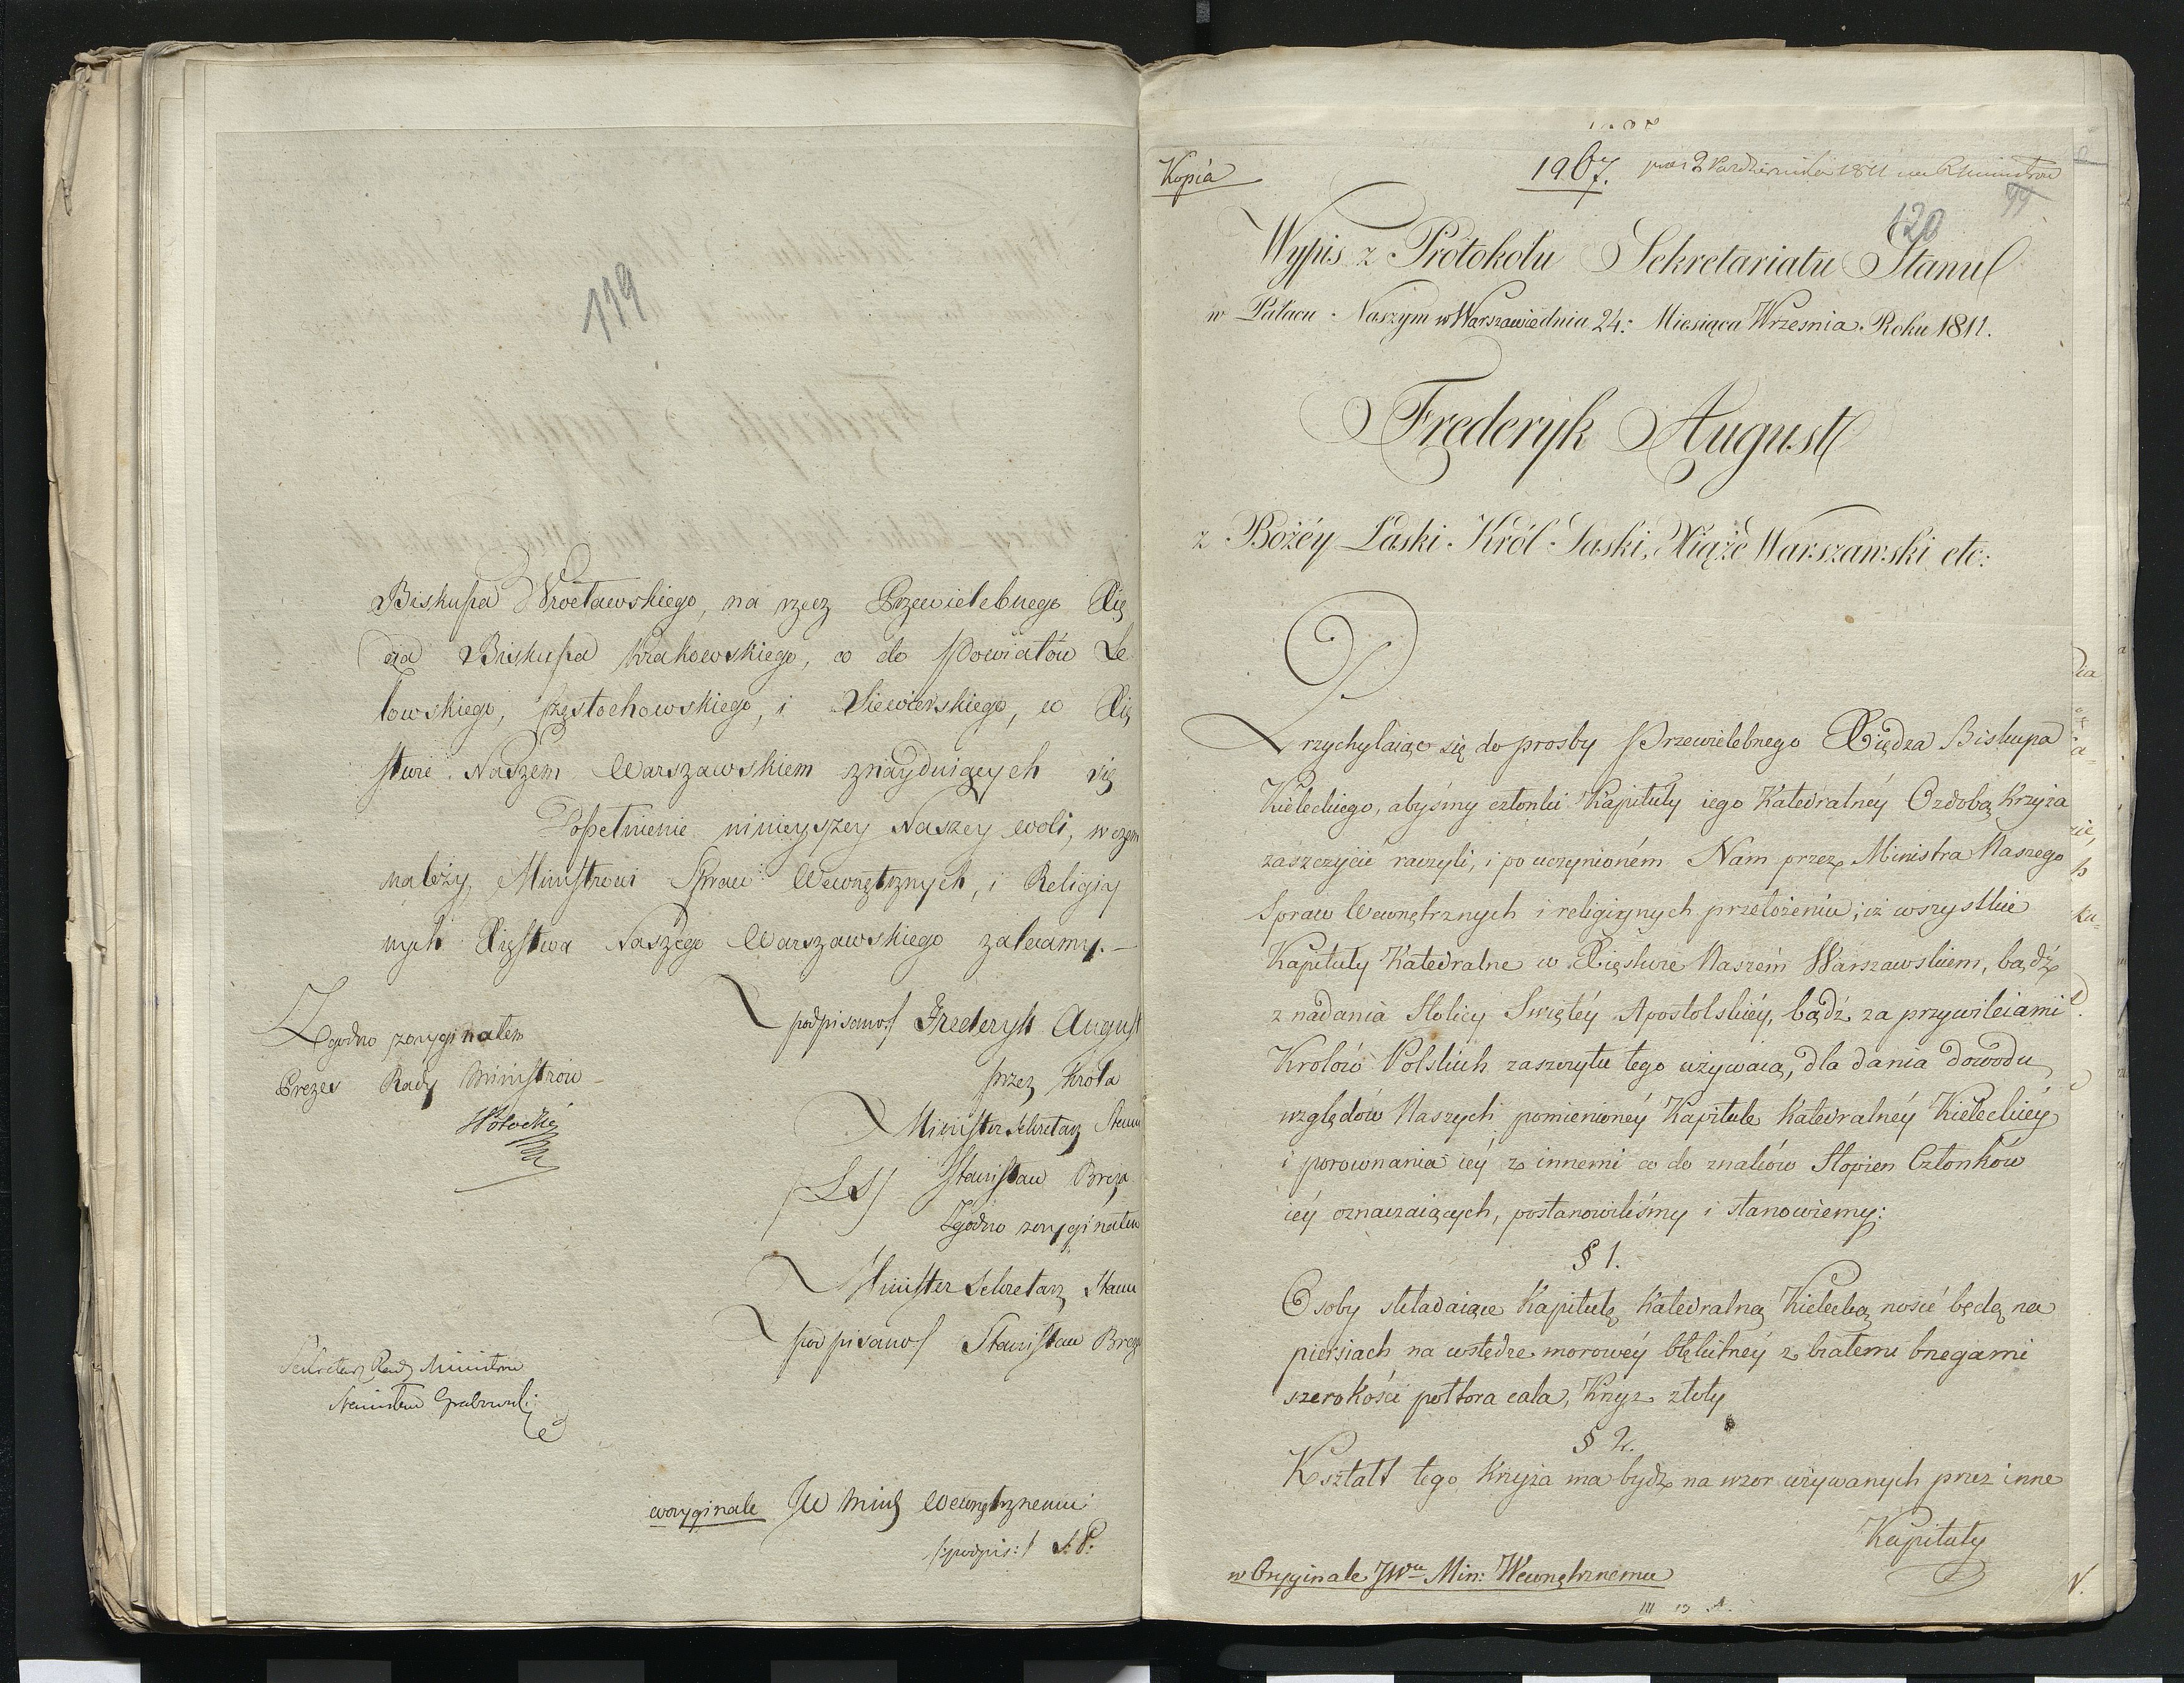 119
Biskupa Wrocławskiego, na rzecz Przewielebnego Xię
dza Biskupa Krakowskiego, co do Powiatów Le
lowskiego, Częstochowskiego, i Siewierskiego, w Xię
stwie Naszem Warszawskiem znayduiących się
Dopełnienie ninieyszey Naszey woli, w czem
należy, Ministrowi Spraw Wewnętrznych, i Religiy
nych Xięstwa Naszego Warszawskiego zalecamy.—
podpisano/ Frederyk August
przez Króla
Minister Sekretarz Stanu
/LS/ Stanisław Breza
Zgodno z oryginałem
Minister Sekretarz Stanu
podpisano/ Stanisław Breza
Zgodno z oryginałem
Prezes Rady Ministrów
Sekretarz Rady Ministrów
Stanisław Grabowski
w oryginale JW Min Wewnętrznemu
/:podpis:/ S:P:
Kopia
1967.
Października 1811
99
120
Wypis z Protokołu Sekretariatu Stanu
w Pałacu Naszym w Warszawie dnia 24: Miesiąca Wrzesnia Roku 1811.
Frederyk August
z Bożéy Łaski Król Saski, Xiąże Warszawski etc:
Przychylaiąc się do prosby Przewielebnego Xiędza Biskupa
Kieleckiego, abyśmy członki Kapituły iego Katedralnéy Ozdobą Krzyża
zaszczycić raczyli, i po uczynioném Nam przez Ministra Naszego
Spraw Wewnętrznych i religiynych przełożeniu; iż wszystkie
Kapituły Katedralne w Xięstwie Naszém Warszawskiem, bądź
z nadania Stolicy Swiętéy Apostolskiéy, bądź za przywileiami
Krolów Polskich zaszczytu tego używaią, dla dania dowodu
względów Naszych pomienionéy Kapitule Katedralnéy Kieleckiéy
i porownania iéy z innemi co do znaków Stopien Członków
iéy oznaczaiących, postanowiliśmy i stanowiemy:
§ 1.
Osoby składaiące Kapitułę Katedralną Kielecką nosić będą na
piersiach na wstędze morowéy błękitnéy z białemi brzegami
szerokości połtora cala, Krzyż złoty
§ 2.
Kształt tego Krzyża ma bydź na wzor używanych przez inne
Kapituły
w Oryginale JWu Min: Wewnętrznemu